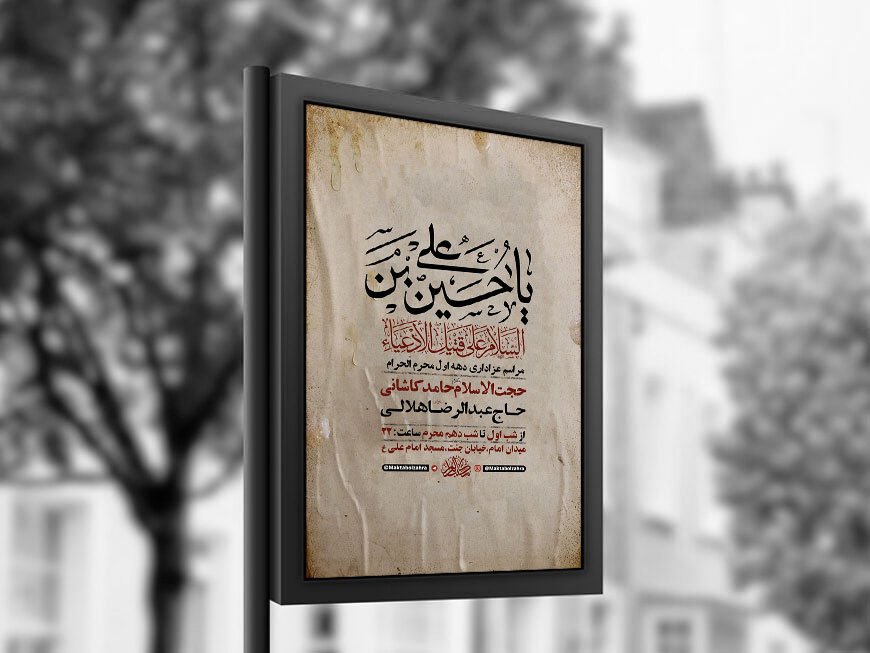 یا حسین بن علی ع
السَّلامُ عَلی قَتیلِ الأَدعیاء
مراسم عزاداری دهه اول محرم الحرام
حجت الاسلام حامد کاشانی
حاج عبدالرضا هلالی
از شب اول تا شب دهم محرم ساعت: ۲۲
میدان امام، خیابان جنت، مسجد امام علی ع
@Maktabolzahra @Maktabolzahra